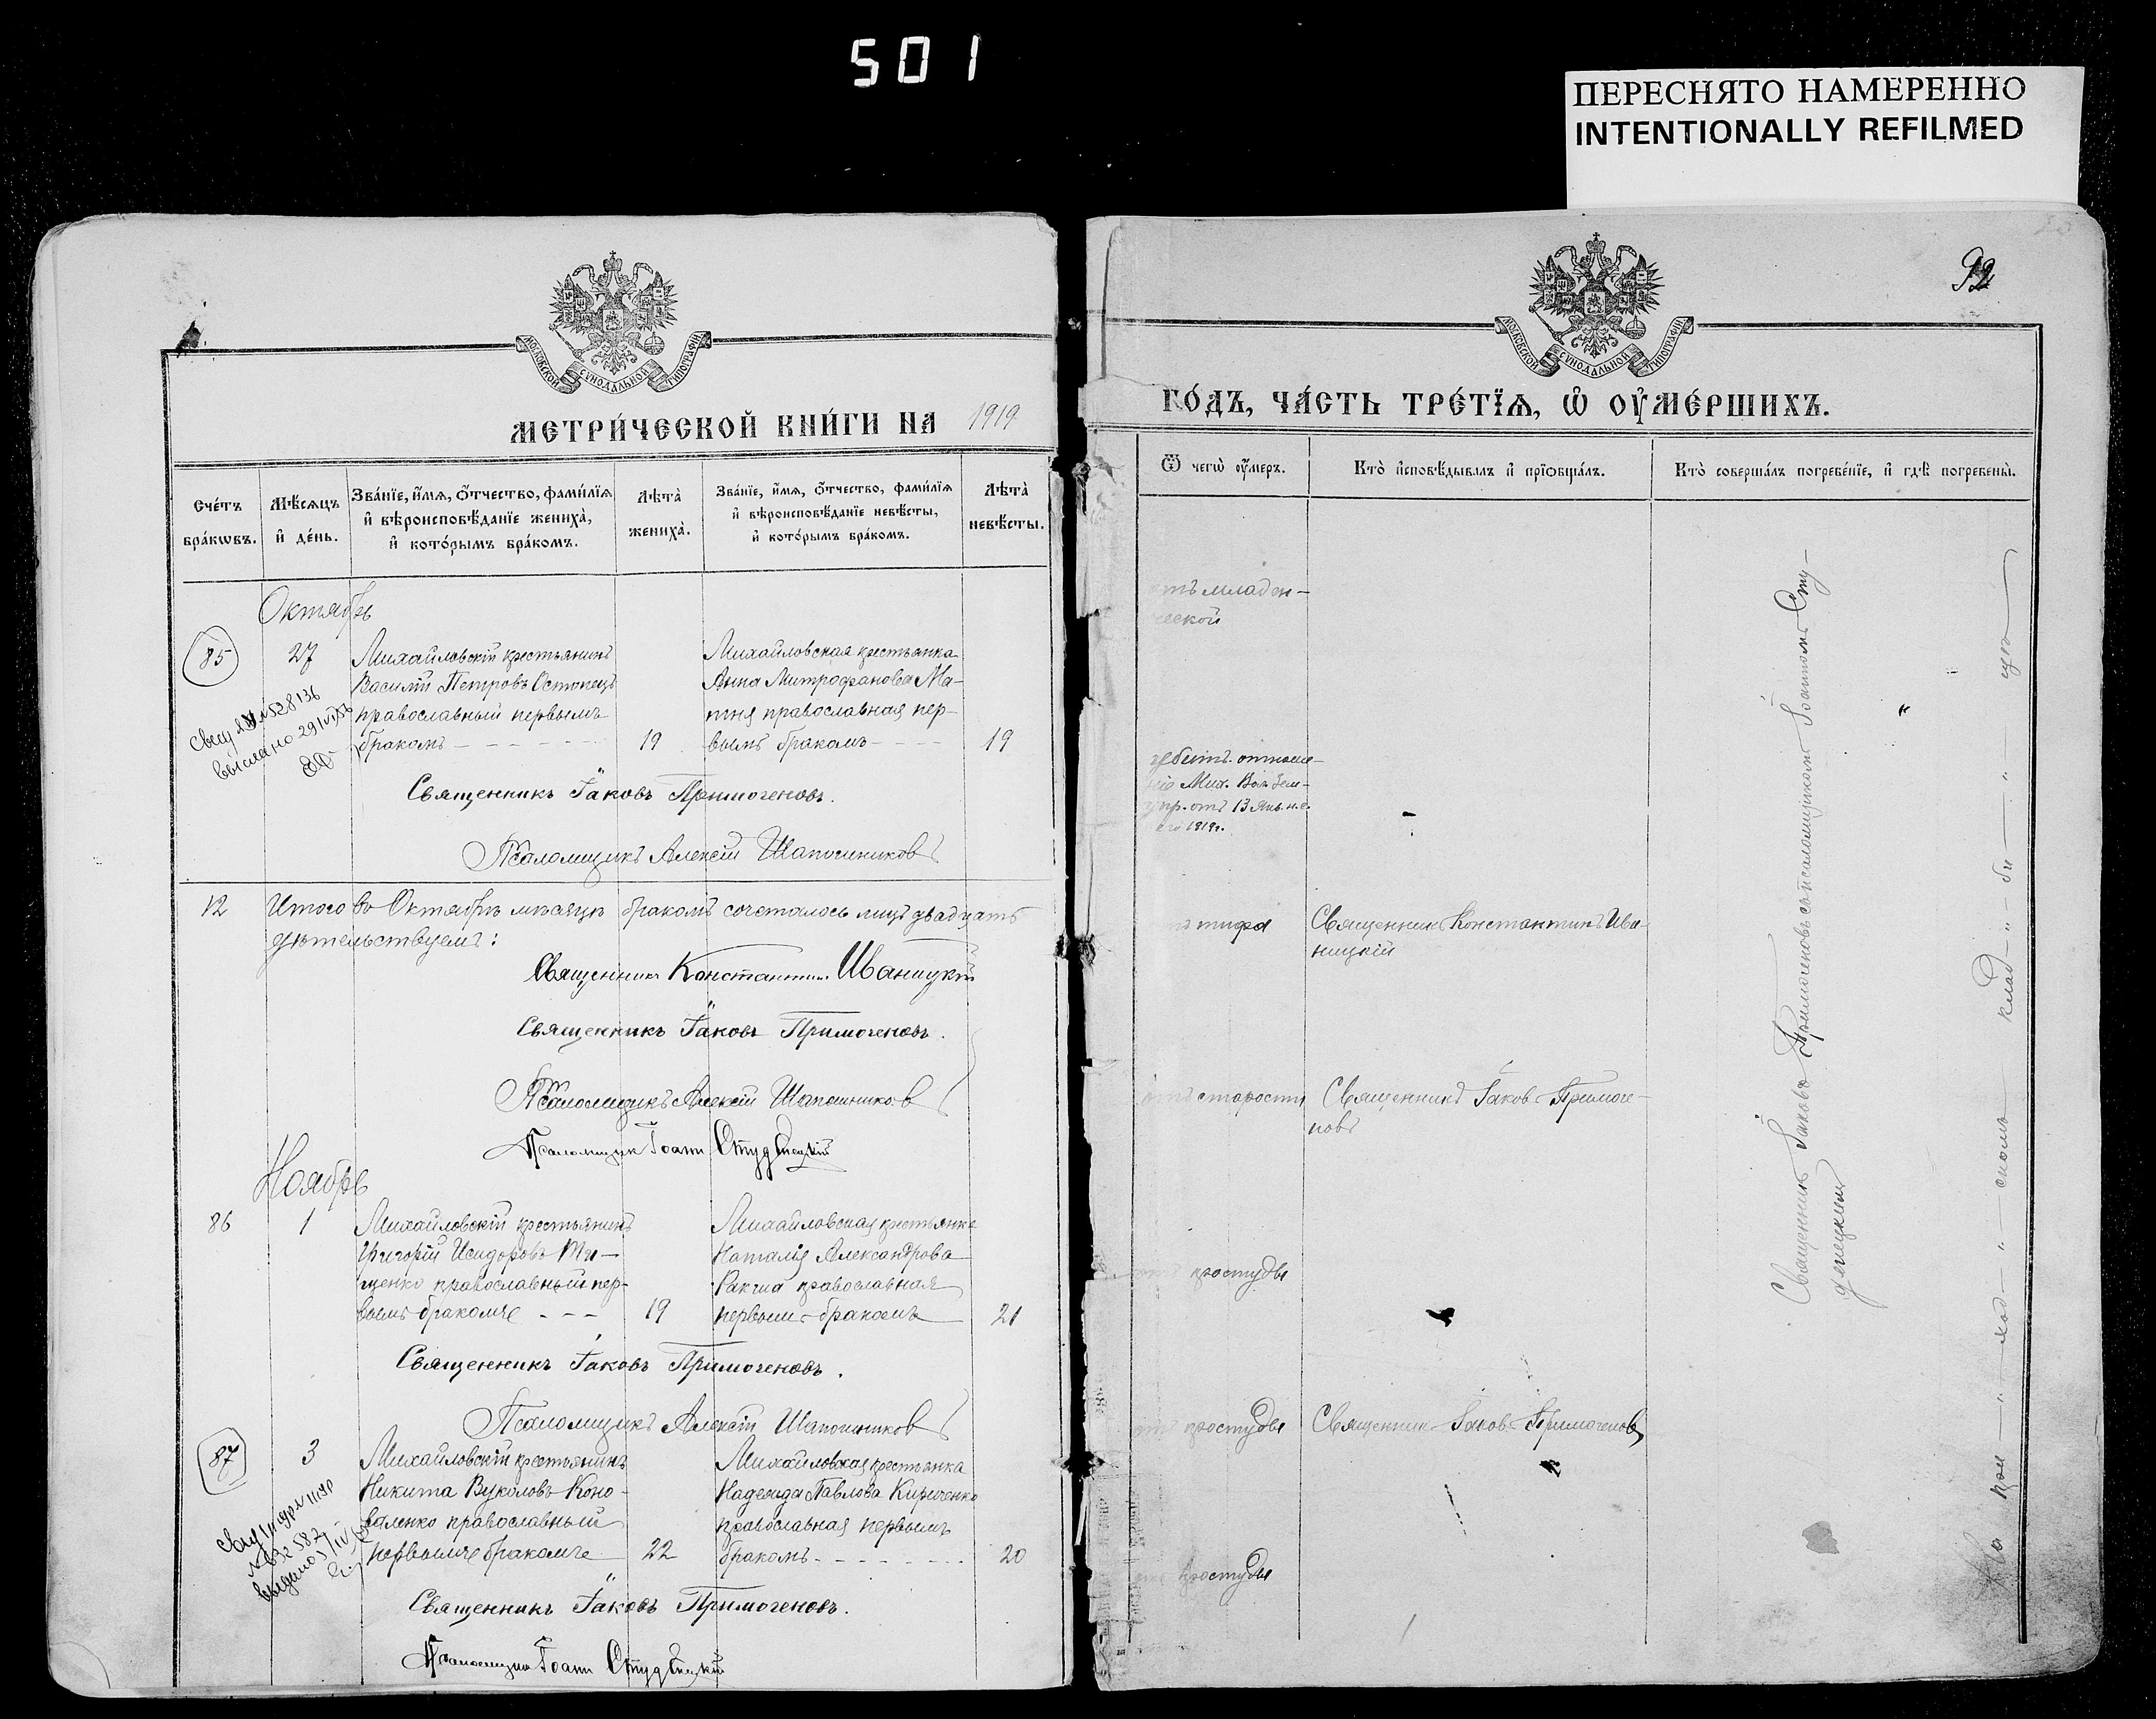 501
ПЕРЕСНЯТО НАМЕРЕННО
INTENTIONALLY REFILMED
МОСКОВСКОЙ СѴНОДАЛЬНОЙ ТИПОГРАФІИ
МЕТРИ́ЧЕСКОЙ КНИ́ГИ НА 1919
Сче́тъ бра́кѡвъ.
Мѣ́сѧцъ и҆ де́нь.
Зва́нїе, и҆́мѧ, ѻ҆́тчество, фами́лїѧ
и҆ вѣроисповѣ́данїе жениха̀,
и҆ кото́рымъ бра́комъ.
Лѣта̀ жениха̀.
Зва́нїе, и҆́мѧ, ѻ҆́тчество, фами́лїѧ
и҆ вѣроисповѣ́данїе невѣ́сты,
и҆ кото́рымъ бра́комъ.
Лѣта̀ невѣ́сты.
Октябрь
85
27
Михайловскій крестьянинъ
Василій Петровъ Остапецъ
православный первымъ
бракомъ
19
Михайловская крестьянка
Анна Митрофанова Ма-
тня православная пер-
вымъ бракомъ
19
№528136
выслано 29/
Священникъ Іаковъ Примогеновъ.
Псаломщикъ Алексій Шапошниковъ
12
Итого въ Октябрѣ мѣсяцѣ бракомъ сочеталось лицъ двадцать
дѣтельствуемъ:
Священникъ Константинъ Иваницкій
Священникъ Іаковъ Примогеновъ.
Псаломщикъ Алексій Шапошников
Псаломщик Іоанн Студенецкій
Ноябрь
86
1
Михайловскій крестьянинъ
Григорій Исидоровъ Ти-
щенко православный пер-
вымъ бракомъ
19
Михайловская крестьянка
Наталія Александрова
Ракша православная
первымъ бракомъ
21
Священникъ Іаковъ Примогеновъ.
Псаломщикъ Алексій Шапошниковъ
87
3
Михайловскій крестьянинъ
Никита Вуколовъ Коно-
валенко православный
первымъ бракомъ
22
Михайловская крестьянка
Надежда Павлова Кириченко
православная первымъ
бракомъ
20
Священникъ Іаковъ Примогеновъ.
Псаломщик Іоанн Студенецкій
92
МОСКОВСКОЙ СѴНОДАЛЬНОЙ ТИПОГРАФІИ
ГО́ДЪ, ЧА́СТЬ ТРЕ́ТЇѦ, Ѡ҆ ОУ҆МЕ́РШИХЪ.
Ѿ чегѡ̀ оу҆́меръ.
Кто̀ и҆сповѣ́дывалъ и҆ прїѡбща́лъ.
Кто̀ соверша́лъ погребе́нїе, и҆ гдѣ̀ погребены̀.
отъ младен-
ческой
убитъ. отноше-
ніе Мих. Вол. Зем-
упр. отъ 13 Янв. н.с.
1919г.
тифа
Священникъ Константинъ Ива-
ницкій
отъ старости
Священникъ Іаков Примоге-
новъ
простуды
простуды
Священник Іаков Примогенов
простуды
Священникъ Іаковъ Примогеновъ съ псаломщикомъ Іоанномъ Сту-
денецкимъ
На при- " -ход- " - скомъ клад- " - би - " - щѣ